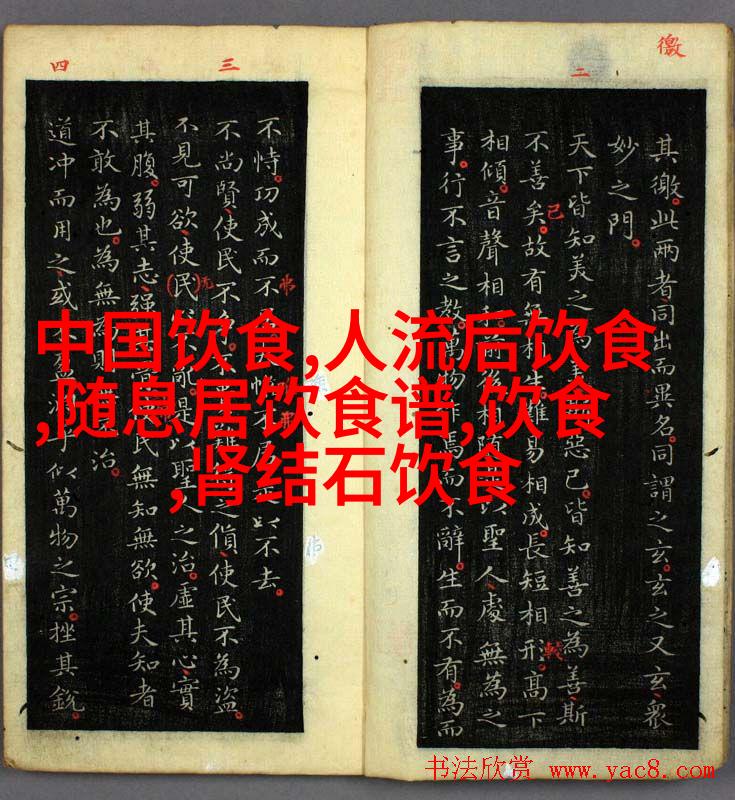 徼
二
其徼此两者同出而異名同謂之玄玄之又玄衆
妙之門
天下皆知美之為惡已皆知善之為善斯
不善矣故有相生難易相成長短相形高下
相傾音聲相前後相隨以聖人處無為之
事行不言之教萬物作焉而不辭生而不有為而
已
三
四
不恃功成而不不居以不去
不尚賢使民不之貨使民不為盜
不見可欲使民亂是以聖人之治虛其心實
其腹弱其志强其民無知無欲使夫知者
不敢為也為無治
道冲而用之或盈淵乎似萬物之宗挫其銳
中国饮食,人流后饮食
,随息居饮食谱,饮食
,肾结石饮食
书法欣赏 www.yac8.com